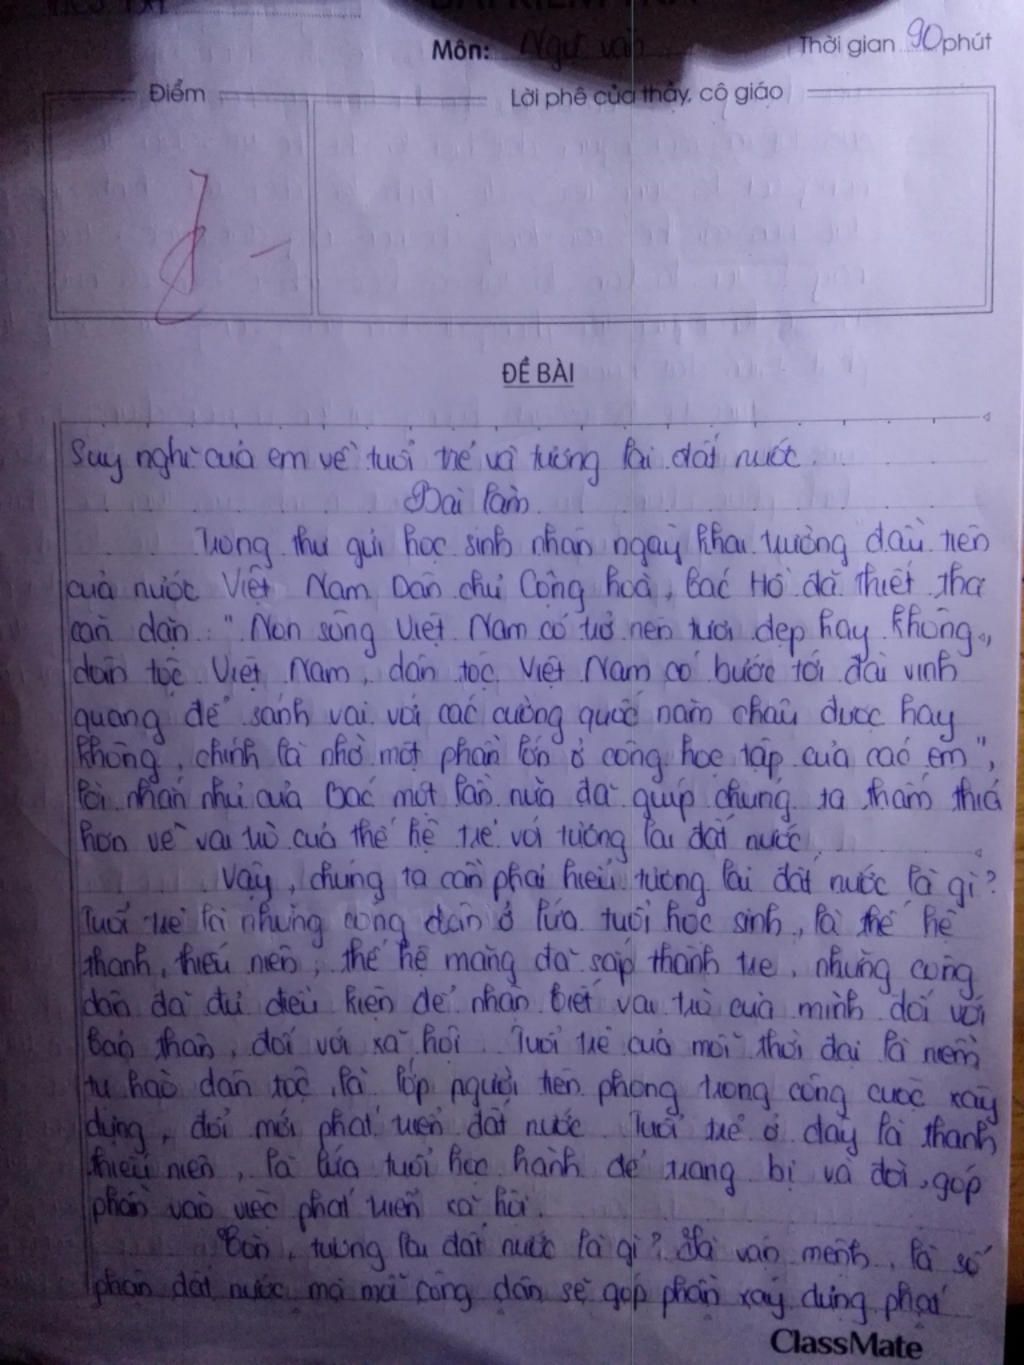 Môn: Ngữ văn Thời gian 90 phút
Điểm Lời phê của thầy, cô giáo
8 -
ĐỀ BÀI
Suy nghĩ của em về tuổi trẻ và tương lai đất nước.
Bài làm
Trong thư gửi học sinh nhân ngày khai trường đầu tiên
của nước Việt Nam Dân chủ Cộng hoà, Bác Hồ đã thiết tha
căn dặn: "Non sông Việt Nam có trở nên tươi đẹp hay không,
dân tộc Việt Nam, dân tộc Việt Nam có bước tới đài vinh
quang để sánh vai với các cường quốc năm châu được hay
không, chính là nhờ một phần lớn ở công học tập của các em",
lời nhắn nhủ của Bác một lần nữa đã giúp chúng ta thấm thía
hơn về vai trò của thế hệ trẻ với tương lai đất nước.
Vậy, chúng ta cần phải hiểu tương lai đất nước là gì?
Tuổi trẻ là những công dân ở lứa tuổi học sinh, là thế hệ
thanh, thiếu niên, thế hệ măng đã sắp thành tre, những công
dân đã đủ điều kiện để nhận biết vai trò của mình đối với
bản thân, đối với xã hội. Tuổi trẻ của mỗi thời đại là niềm
tự hào dân tộc, là lớp người tiên phong trong công cuộc xây
dựng, đổi mới phát triển đất nước. Tuổi trẻ ở đây là thanh
thiếu niên, là lứa tuổi học hành để trang bị và đời, góp
phần vào việc phát triển xã hội.
Còn, tương lai đất nước là gì? Là vận mệnh, là số
phận đất nước mà mỗi công dân sẽ góp phần xây dựng phát
ClassMate